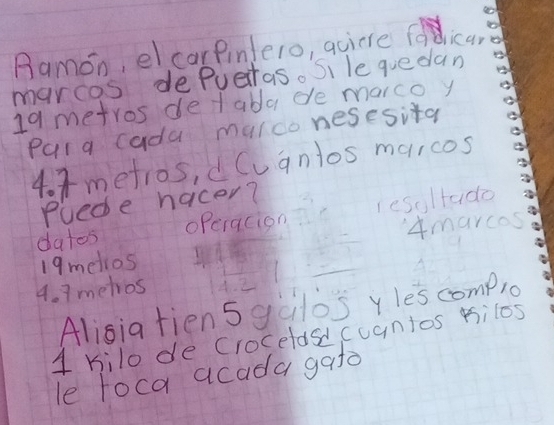 Ramón, el carpintero, quiere fabricar
marcos de Puertas. Si le quedan
19 metros de tabla de marco y
Para cada marco nesesita
4.7 metros, ¿Cuántos marcos
Puede hacer?
datos operacion resultado
19 metros 4 marcos
4.7 metros
Alisia tien 5 gatos y les compro
1 kilo de crocetas ¿cuantos kilos
le toca acada gato